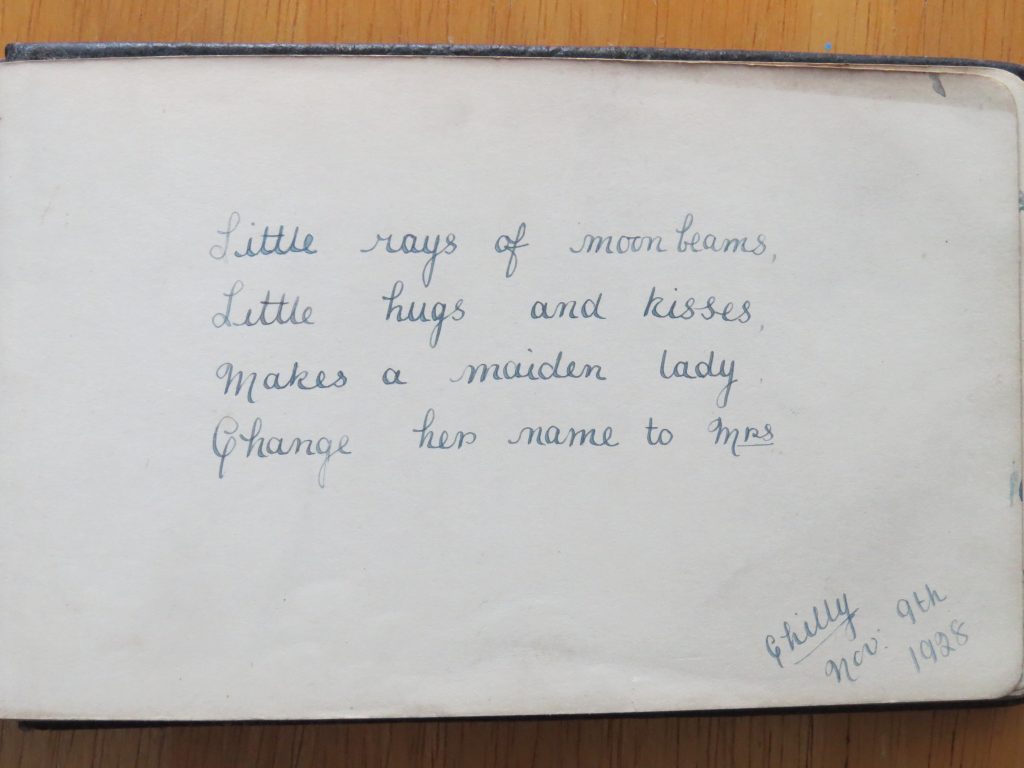 Little rays of moonbeams,
Little hugs and kisses,
Makes a maiden lady.
Change her name to Mrs
Chilly
Nov: 9th
1928